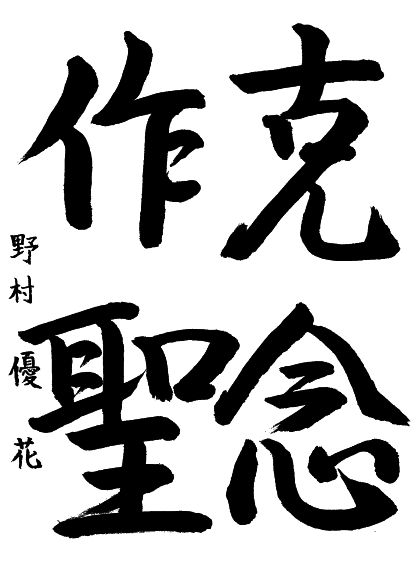 克念
作聖
野村優花